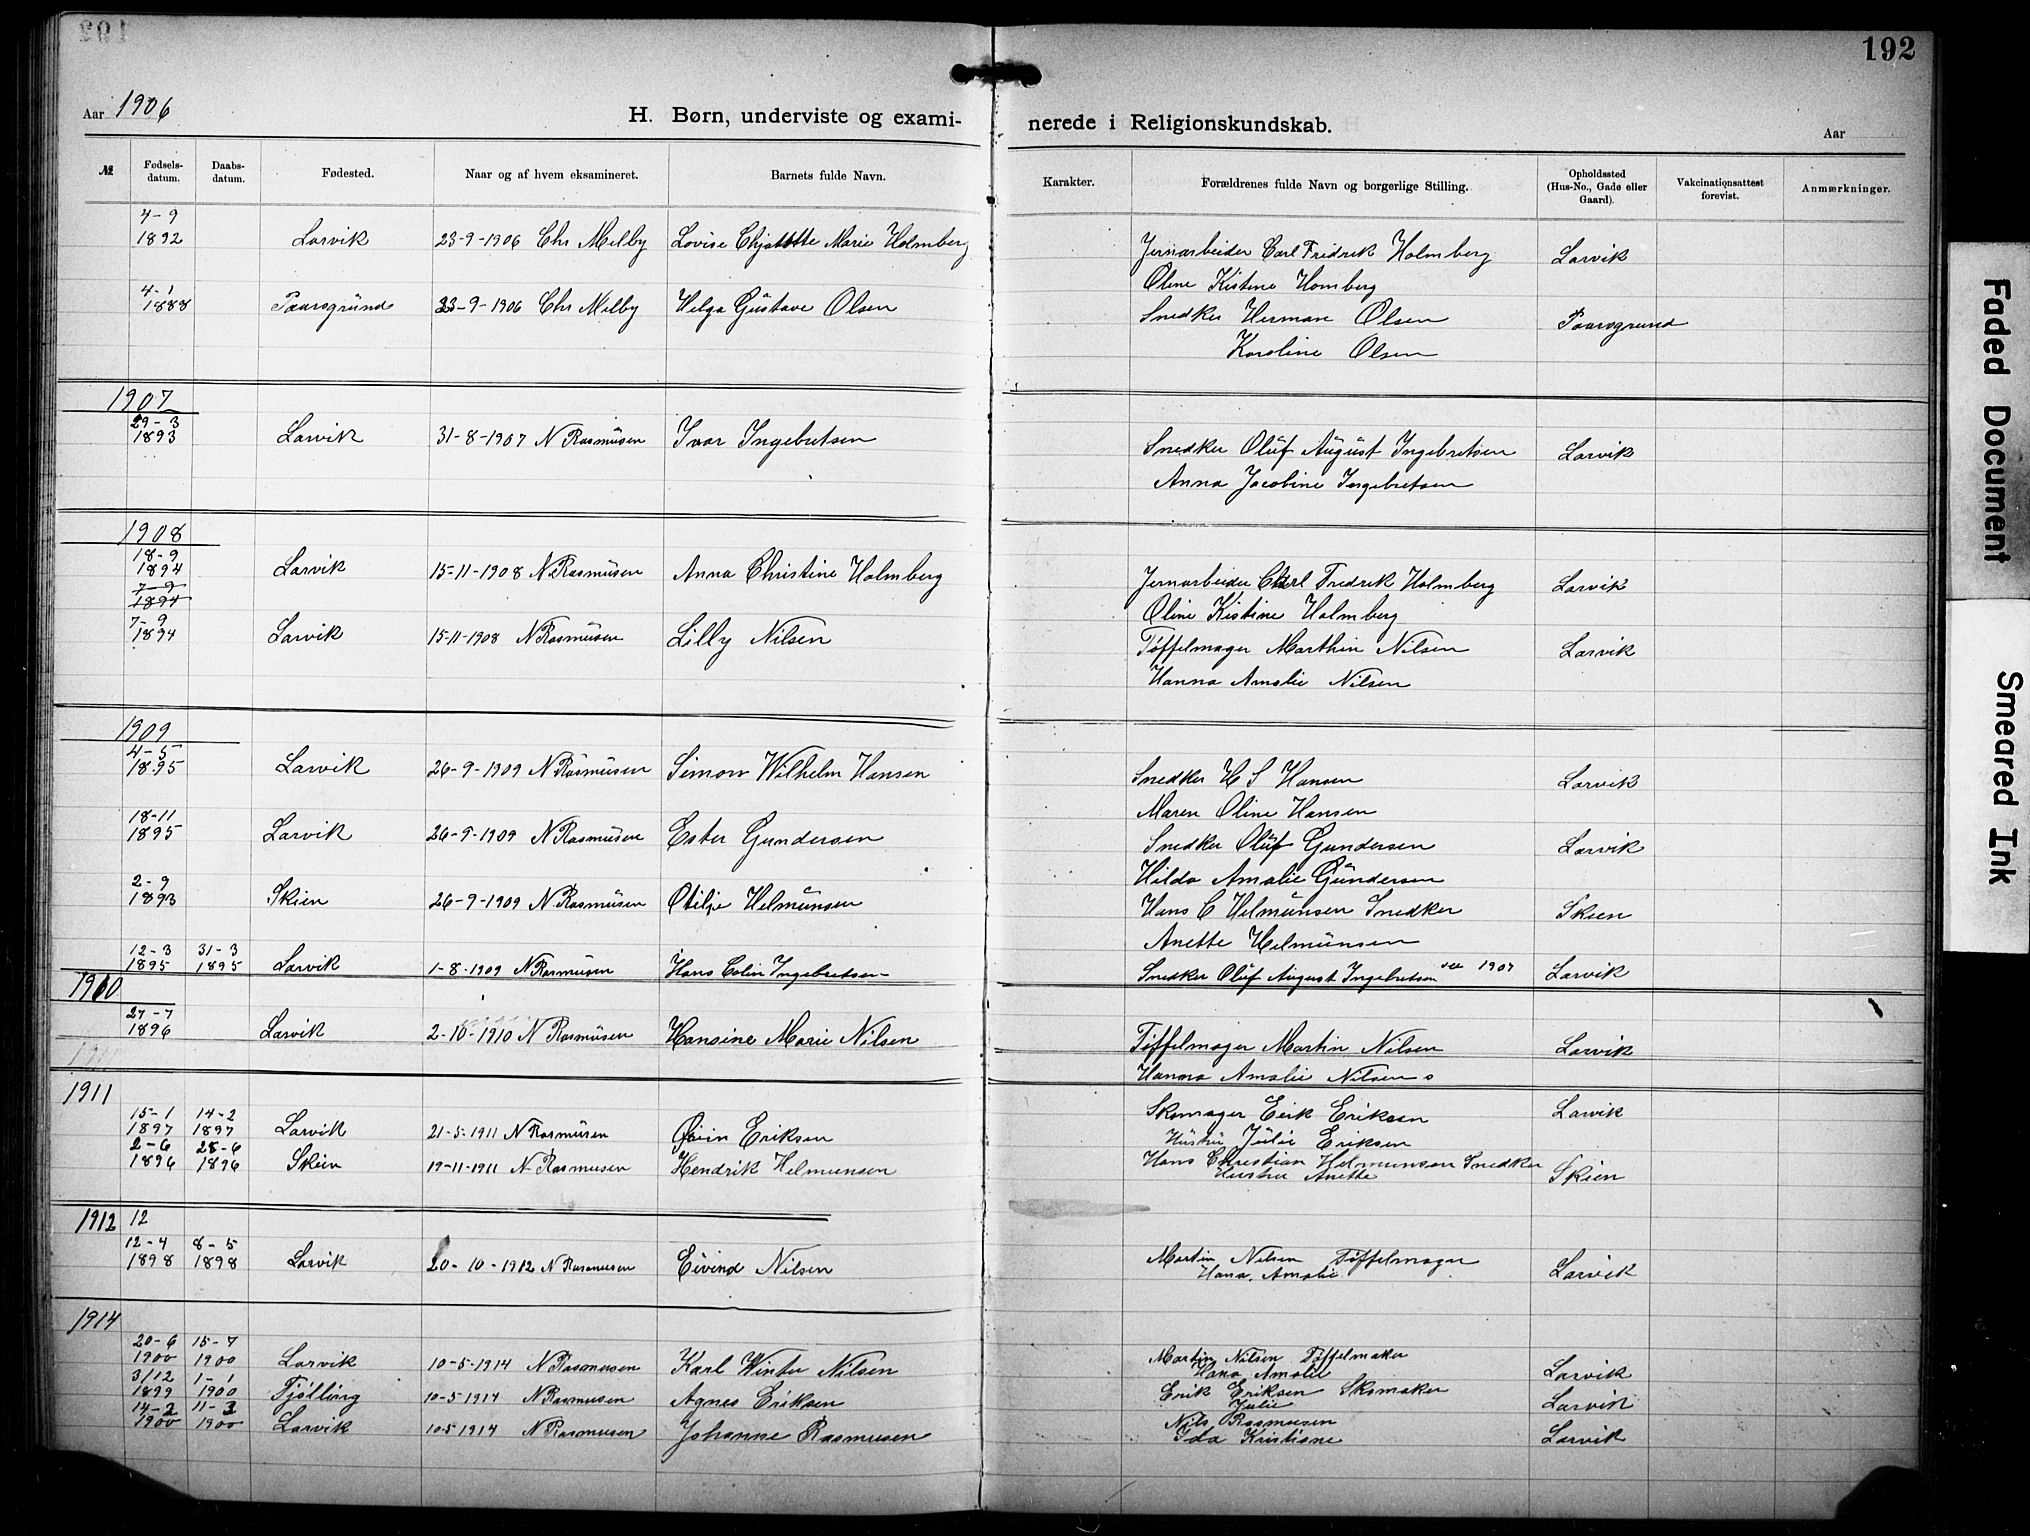 192
Aar 1906
H. Børn, underviste og exami- nerede i Religionskundskab.
Aar
№ Fødsels-datum. Daabs-datum. Fødested. Naar og af hvem eksamineret. Barnets fulde Navn. Karakter. Forældrenes fulde Navn og borgerlige Stilling. Opholdssted (Hus-No., Gade eller Gaard). Vakcinationsattest forevist. Anmærkninger.
4-9
1892 Larvik 23-9-1906 Chr Melby Lovise Marie Holmberg Jernarbeider Carl Fredrek Holmberg Larvik
Oline Kistine Homberg
4-1
1888 Paarsgrund 23-9-1906 Chr Melby Helga Gustave Olsen Snedker Herman Olsen Paarsgrund
Karoline Olsen
1907
29-3
1893 Larvik 31-8-1907 N Rasmusen Ivar Ingebretsen Snedker Oluf August Ingebretsen Larvik
Anna Jacobine Ingebretsen
1908
18-9
1894 Larvik 15-11-1908 N Rasmusen Anna Christine Holmberg Jernarbeider Carl Fredrek Holmberg Larvik
7-9
1894
Oline Kistine Holmberg
7-9
1894 Larvik 15-11-1908 N Rasmusen Lilly Nilsen Tøffelmager Marthin Nilsen Larvik
Hanna Amalie Nilsen
1909
4-5
1895 Larvik 26-9-1909 N Rasmusen Simon Wilhelm Hansen Snedker H S Hansen Larvik
Maren Oline Hansen
18-11
1895 Larvik 26-9-1909 N Rasmusen Ester Gundersen Snedker Oluf Gundersen Larvik
Hilda Amalie Gundersen
2-9
1893 Skien 26-9-1909 N Rasmusen Otilje Helmunsen Hans C Helmunsen Snedker Skien
Anette Helmunsen
12-3 31-3
1895 1895 Larvik 1-8-1909 N Rasmusen Hans Colin Ingebretsen Snedker Oluf August Ingebretsen 1907 Larvik
1910
27-7
1896 Larvik 2-10-1910 N Rasmusen Hansine Marie Nilsen Tøffelmager Martin Nilsen Larvik
Hanna Amalie Nilsen
1911
15-1 14-2
1897 1897 Larvik 21-5-1911 N Rasmusen Øivin Eriksen Skomager Erik Eriksen Larvik
Hustru Julie Eriksen
2-6 28-6
1896 1896 Skien 19-11-1911 N Rasmusen Hendrik Helmunsen Hans Christian Helmunsen Snedker Skien
Hustru Anette
1912 12
12-4 8-5
1898 1898 Larvik 20-10-1912 N Rasmusen Eivind Nilsen Martin Nilsen Tøffelmager Larvik
Hana Amalie
1914
20-6 15-7
1900 1900 Larvik 10-5-1914 N Rasmusen Karl Winter Nilsen Martin Nilsen Tøffelmaker Larvik
Hana Amalie
3/12 1-1
1899 1900 Tjølling 10-5-1914 N Rasmusen Agnes Eriksen Erik Eriksen Skomaker Larvik
Julie
14-2 11-3
1900 1900 Larvik 10-5-1914 N Rasmusen Johanne Rasmusen Nils Rasmusen Larvik
Ida Kristiane
Faded Document
Smeared Ink